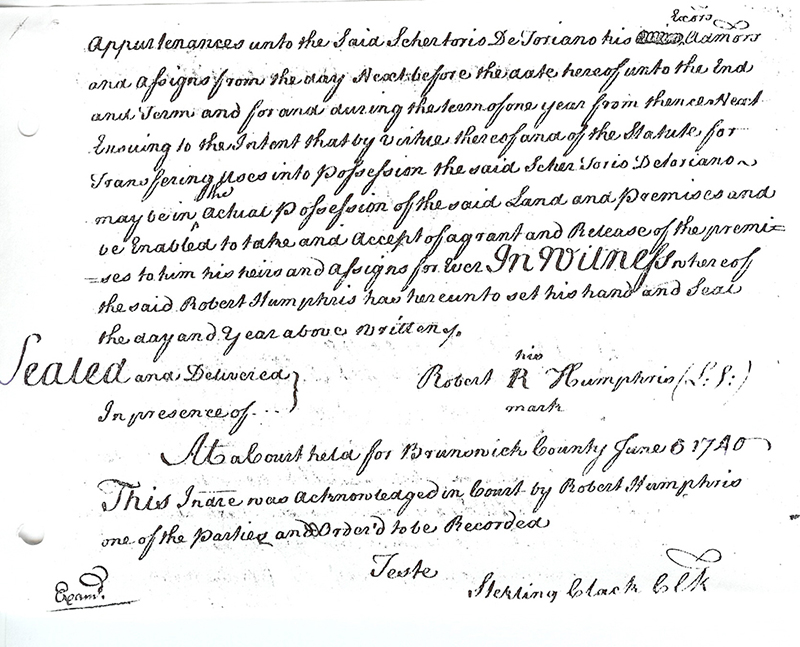 Exors
Appurtenances unto the Said Schertoris De Toriano his Admors
and Assigns from the day Next before the date hereof unto the End
and Term and for and during the term of one year from thence Next
Ensuing to the Intent that by virtue thereof and of the Statute for
Transfering Uses into Possession the said Scher Toris Detoriano
may be in the Actual Possession of the said Land and Premises and
be Enabled to take and Accept of a grant and Release of the premi=
=ses to him his heirs and Assigns for Ever In Witness whereof
the said Robert Humphris has hereunto set his hand and Seal
the day and Year above written.
Sealed and Delivered
In presence of...
his
Robert R Humphris (L:S:)
mark
At a Court held for Brunswick County June 6 1740
This Indre was Acknowledged in Court by Robert Humphris
one of the Parties and Order'd to be Recorded
Teste
Examd.
Sterling Clack Clk